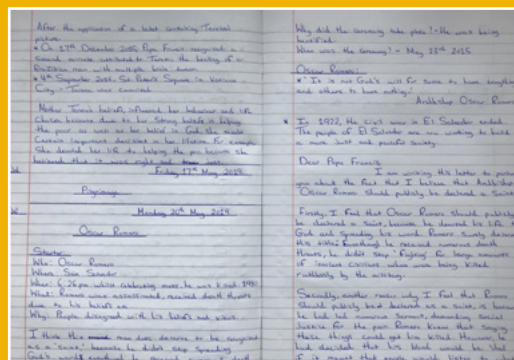 After the application of a locket containing Teresa's
picture.
* On 17th December 2015 Pope Francis recognised a
second miracle attributed to Teresa: the healing of a
Brazilian man with multiple brain
* 4th September 2016, St Peter's Square in Vatican
City - Teresa was canonised
Mother Teresa's beliefs influenced her behaviour and life
choices because due to her strong beliefs in helping
the poor as well as her belief in God, she made
certain important decisions in her lifetime. For example
She devoted her life to helping the poor because she
believed that it was right and just.
Friday 17th May 2019
Pilgrimage
Monday 20th May 2019
Oscar Romero
Starter:
Who: Oscar Romero
Where: San Salvador
When: 6:26pm whilst celebrating mass, he was killed. 1980
What: Romero was assassinated, received death threats
due to his beliefs and
Why: People disagreed with his beliefs and views.
I think this man does deserve to be recognised
as a 'saint' because he didn't stop spreading
God's word
Why did the ceremony take place? - He was being
beatified.
When was the ceremony? - May 23rd 2015
Oscar Romero:
* 'It is not God's will for some to have everything
and others to have nothing.'
Archbishop Oscar Romero
* In 1992, the civil war in El Salvador ended.
The people of El Salvador are now working to build
a more just and peaceful society.
Dear Pope Francis,
I am writing this letter to
you about the fact that I believe that Archbishop
Oscar Romero should publicly be declared a Saint.
Firstly, I feel that Oscar Romero should publicly
be declared a Saint, because he devoted his life to
God and spreading his word. Romero surely deserves
this title. Even though he received numerous death
threats, he didn't stop 'fighting' for large amounts
of innocent civilians who were being killed
ruthlessly by the military.
Secondly, another reason why I feel that Romero
should publicly be declared as a saint, is because
he had led numerous sermons, demanding social
justice for the poor. Romero knew that saying
these things could get him killed. However he
had decided that his blood would be shed
if it meant that people would